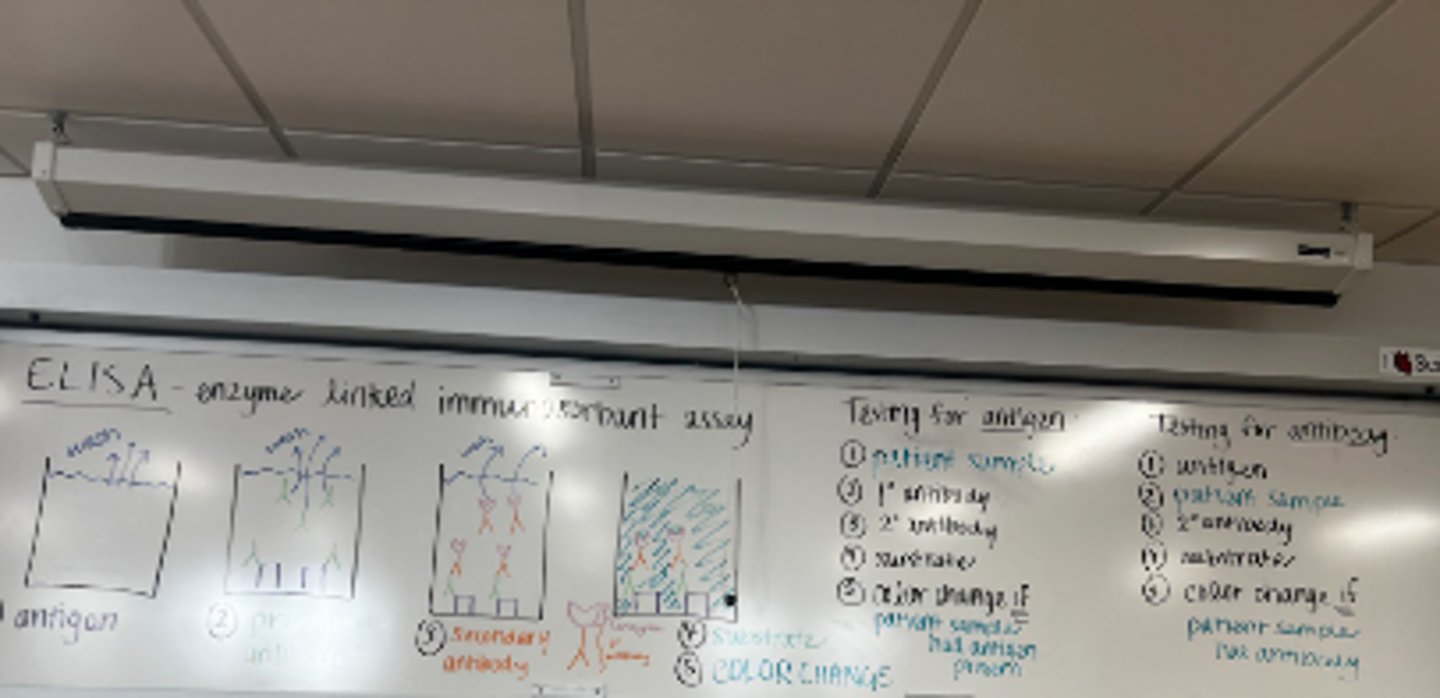 ELISA - enzyme linked immunosorbant assay
wash
wash
antigen
②
③ secondary
antibody
④ substrate
⑤ COLOR CHANGE
Testing for antigen
① patient sample
② 1° antibody
③ 2° antibody
④ substrate
⑤ color change if
patient sample
had antigen
present
Testing for antibody
① antigen
② patient sample
③ 2° antibody
④ substrate
⑤ color change if
patient sample
has antibody
I